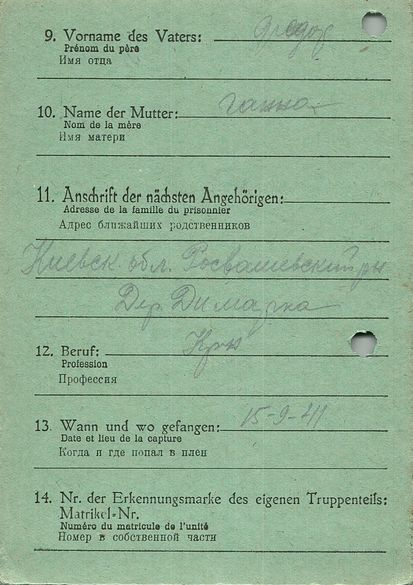 9. Vorname des Vaters:
Prénom du père
Имя отца
10. Name der Mutter: ганна
Nom de la mère
Имя матери
11. Anschrift der nächsten Angehörigen:
Adresse de la famille du prisonnier
Адрес ближайших родственников
Киевск обл. Росвашевский рн
Дер. Димарка
12. Beruf:
Profession
Профессия
13. Wann und wo gefangen: 15-9-41
Date et lieu de la capture
Когда и где попал в плен
14. Nr. der Erkennungsmarke des eigenen Truppenteils:
Matrikel=Nr.
Numéro du matricule de l'unité
Номер в собственной части